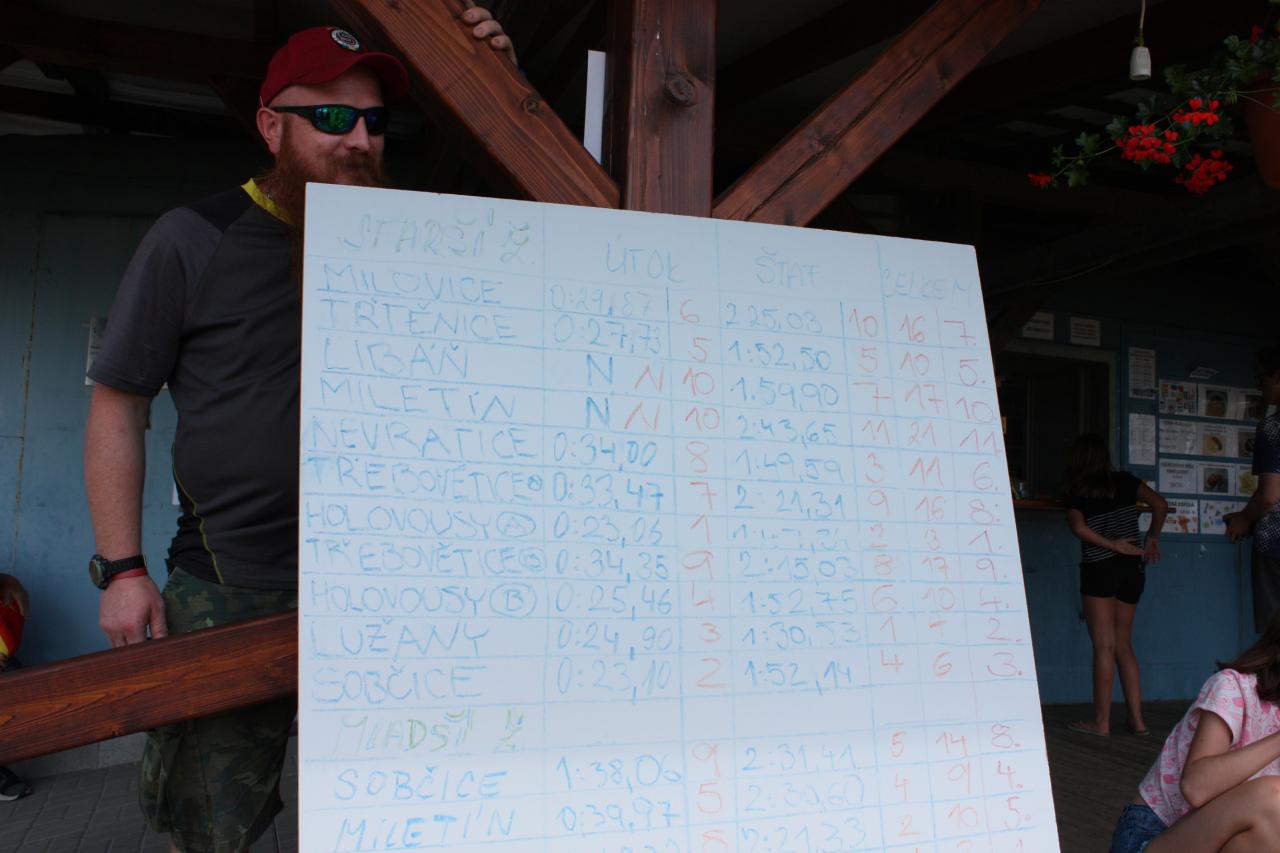 STARŠÍ Ž. ÚTOK ŠTAF CELKEM
MILOVICE 0:29,87 6 2 25,03 10 16 7.
TŘTĚNICE 0:27,73 5 1:52,50 5 10 5.
LIBÁŇ N N 10 1:59,90 7 17 10.
MILETÍN N N 10 2:43,65 11 21 11.
NEVRATICE 0:34,00 8 1:49,59 3 11 6.
TŘEBOVĚTICE 0:33,47 7 2:21,31 9 16 8.
HOLOVOUSY A 0:23,06 1 2 3 1.
TŘEBOVĚTICE 0:34,35 9 2:15,03 8 17 9.
HOLOVOUSY B 0:25,46 4 1:52,75 6 10 4.
LUŽANY 0:24,90 3 1:30,53 1 2.
SOBČICE 0:23,10 2 1:52,14 4 6 3.
MLADŠÍ Ž
SOBČICE 1:38,06 9 2:31,41 5 14 8.
MILETÍN 0:39,97 5 2:30,60 4 9 4.
8 2:21,33 2 10 5.